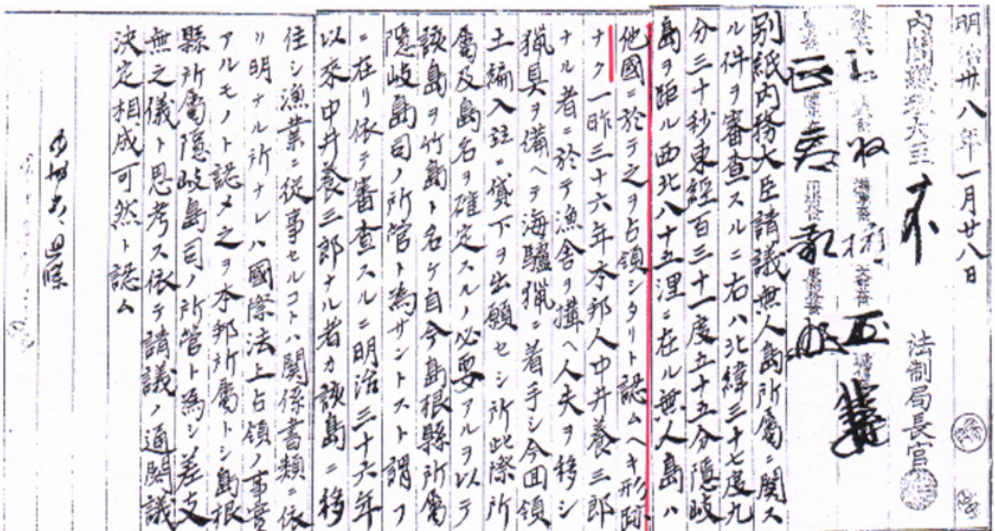 明治卅八年一月廿八日
内閣總理大臣
法制局長官
別紙内務大臣請議無人島所屬ニ関ス
ル件ヲ審査スルニ右ハ北緯三十七度九
分三十秒東經百三十一度五十五分隠岐
島ヲ距ル西北八十五浬ニ在ル無人島ハ
他國ニ於テ之ヲ占領シタリト認ムヘキ形跡
ナク一昨三十六年本邦人中井養三郎
ナル者ニ於テ漁舎ヲ構ヘ人夫ヲ移シ
猟具ヲ備ヘテ海驢猟ニ着手シ今回領
土編入並ニ貸下ヲ出願セシ所此際所
屬及島名ヲ確定スルノ必要アルヲ以テ
該島ヲ竹島ト名ケ自今島根縣所屬
隠岐島司ノ所管ト為サントスト謂フ
ニ在リ依テ審査スルニ明治三十六年
以来中井養三郎ナル者カ該島ニ移
住シ漁業ニ從事セルコトハ関係書類ニ依
リ明ナル所ナレハ國際法上占領ノ事實
アルモノト認メ之ヲ本邦所屬トシ島根
縣所屬隠岐島司ノ所管ト為シ差支
無之儀ト思考ス依テ請議ノ通閣議
決定相成可然ト認ム